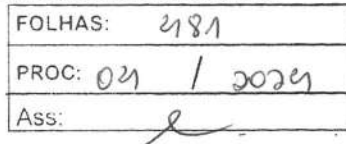 FOLHAS: 481
PROC: 04 / 2024
Ass: